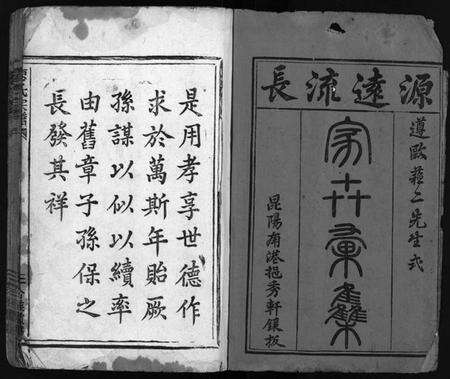 源遠流長
遵歐蘇二先生式
家乘彙集
昆陽南港挹秀軒鐫板
是用孝享世德作
求於萬斯年貽厥
孫謀以似以續率
由舊章子孫保之
長發其祥